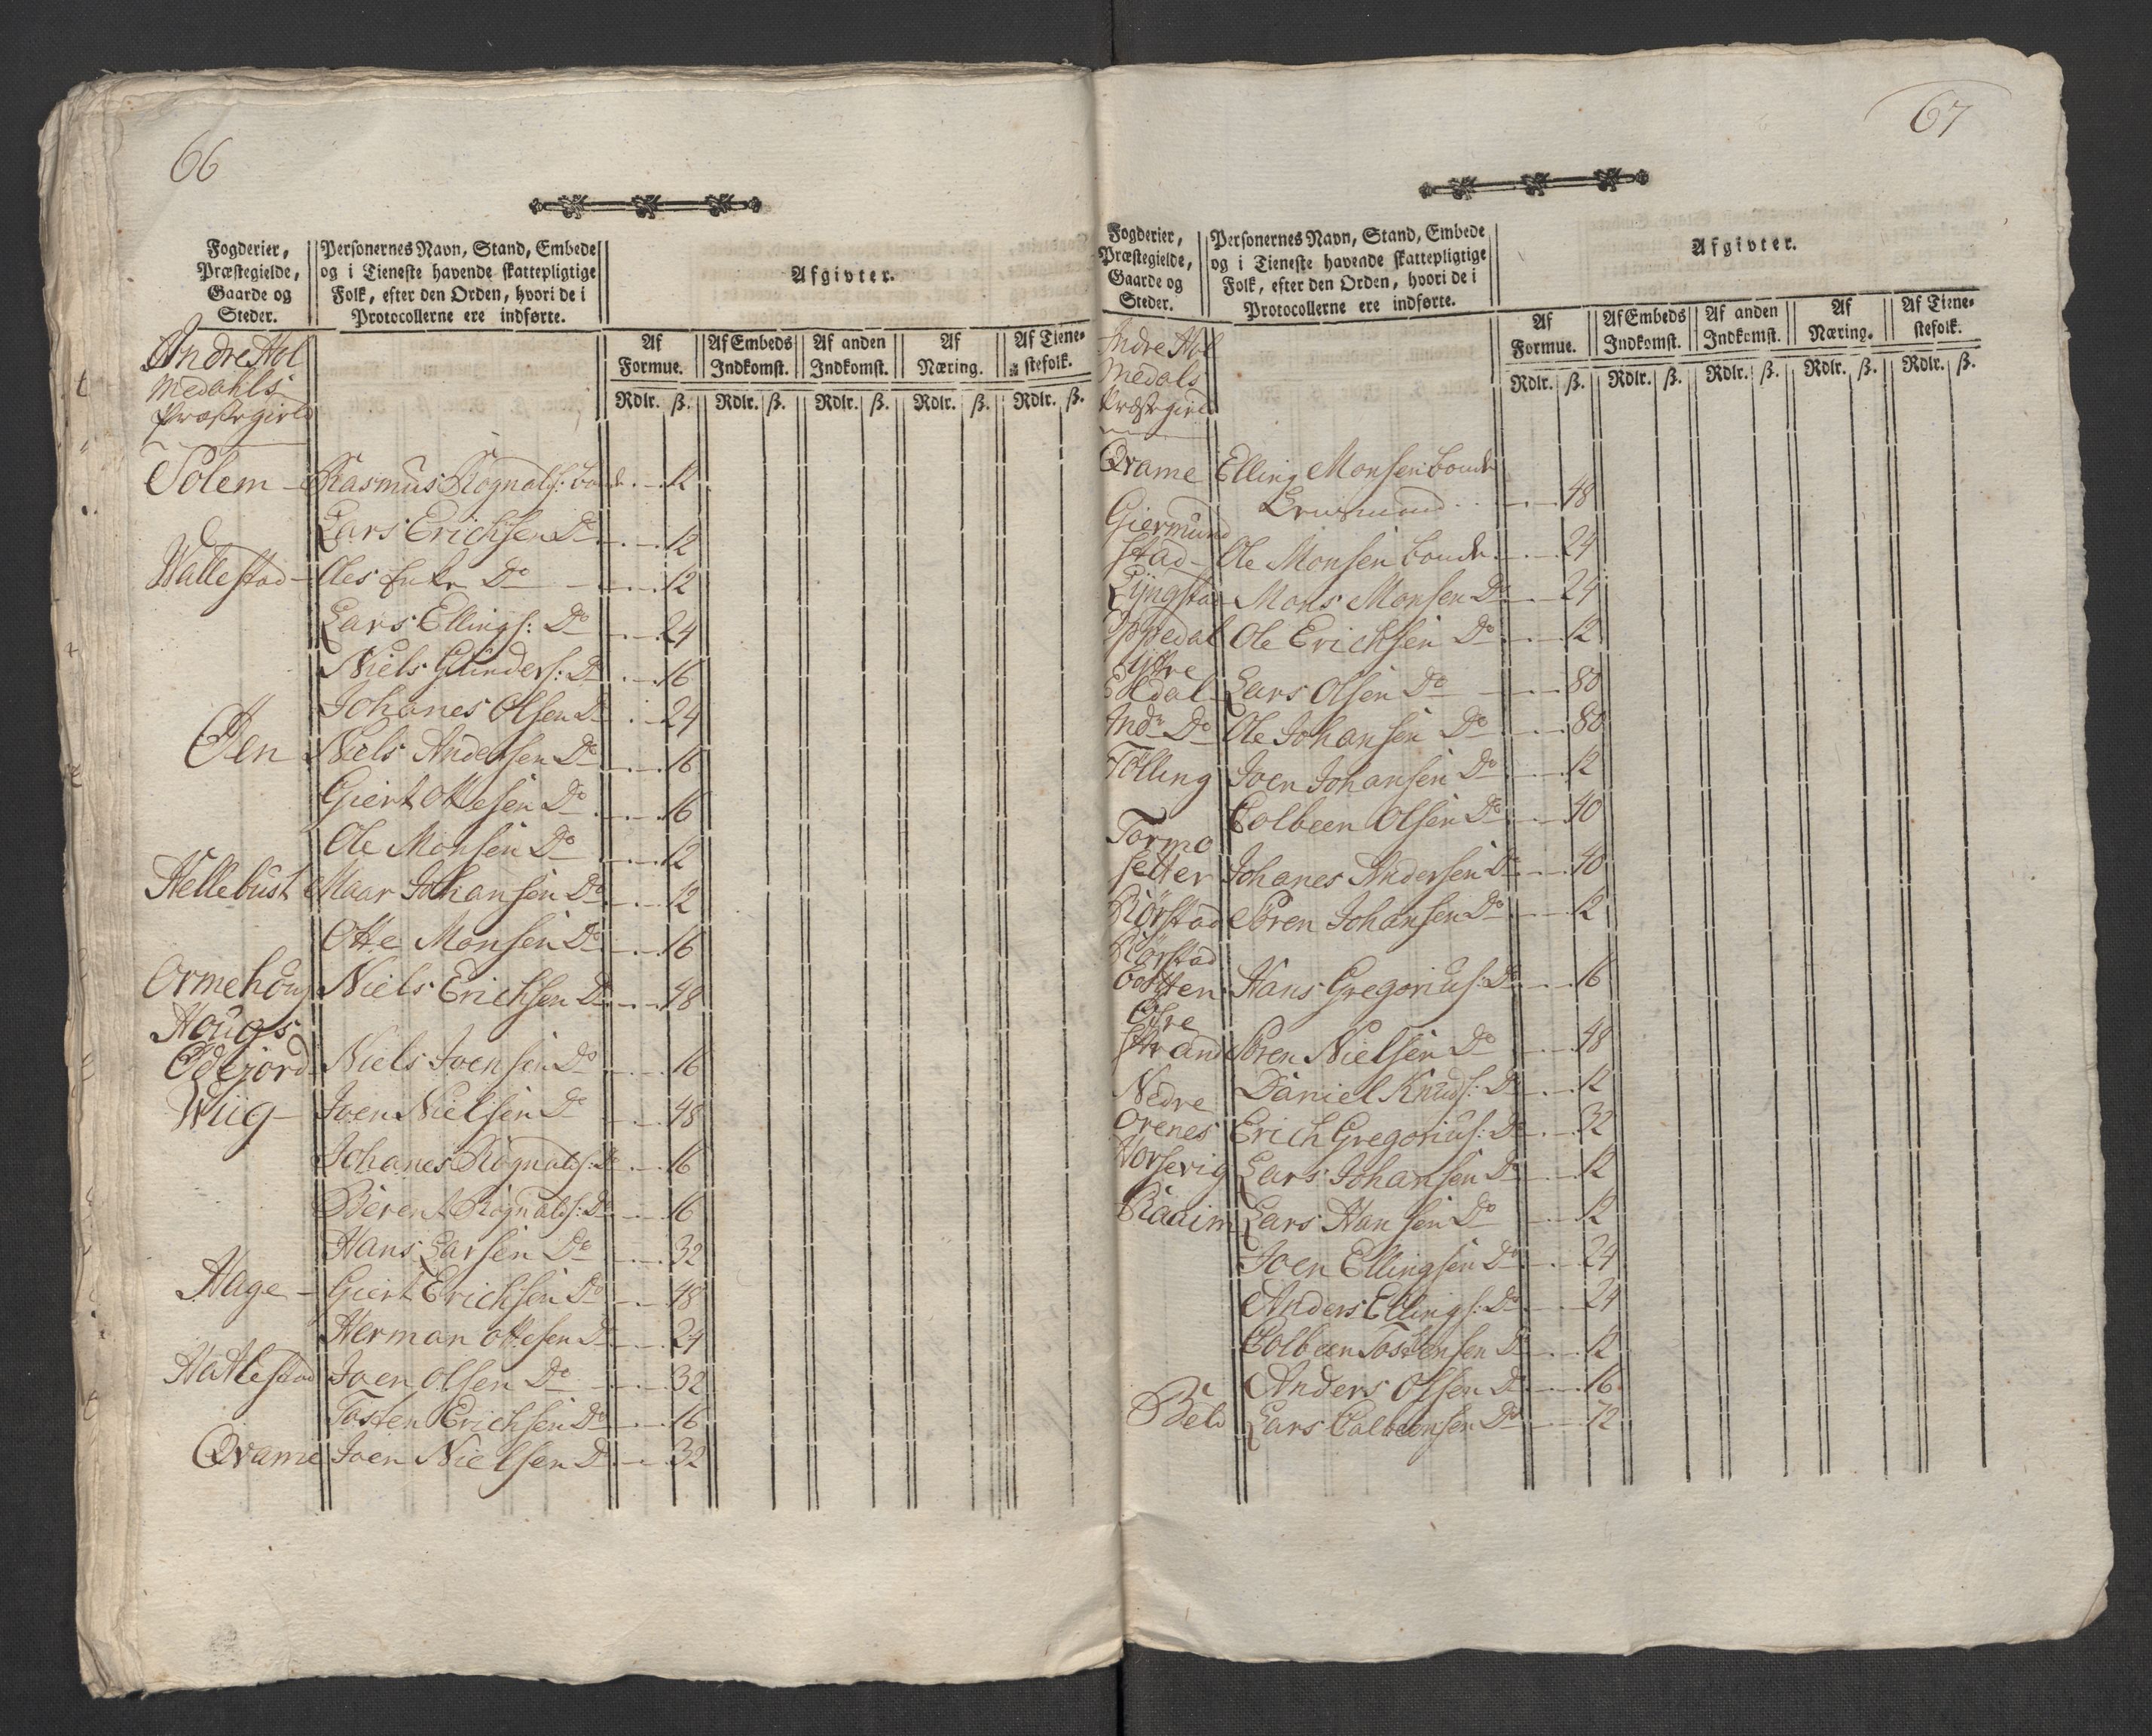 66
Fogderier,
Præstegielde,
Gaarde og
Steder.
Personernes Navn, Stand, Embede
og i Tieneste havende skattepligtige
Folk, efter den Orden, hvori de i
Protocollerne ere indførte.
Afgivter.
Af Formue. Af Embeds Indkomst. Af anden Indkomst. Af Næring. Af Tienestefolk.
Rdlr. ß. Rdlr. ß. Rdlr. ß. Rdlr. ß. Rdlr. ß.
Indre Hol
medahls
Præstegield
Solem - Rasmus Rognalds: bonde 12
Lars Erichsen Do 12
Wallestad - Oles Enke Do 12
Lars Ellings: Do 24
Niels Gunders: Do 16
Johanes Olsen Do 24
Øen Niels Andersen Do 16
Giert Ottesen Do 16
Ole Monsen Do 12
Hellebust Ivaar Johansen Do 12
Otte Monsen Do 16
Ormehoug Niels Erichsen Do 48
Hougs
Ødejord Niels Joensen Do 16
Wiig - Joen Nielsen Do 48
Johanes Rognalds: Do 16
Berent Rognalds: Do 16
Hans Larsen Do 32
Hage - Giert Erichsen Do 48
Herman Ottesen Do 24
Hatlestad Joen Olsen Do 32
Tosten Erichsen Do 16
Qvame Joen Nielsen Do 32
67
Fogderier,
Præstegielde,
Gaarde og
Steder.
Personernes Navn, Stand, Embede
og i Tieneste havende skattepligtige
Folk, efter den Orden, hvori de i
Protocollerne ere indførte.
Afgivter.
Af Formue. Af Embeds Indkomst. Af anden Indkomst. Af Næring. Af Tienestefolk.
Rdlr. ß. Rdlr. ß. Rdlr. ß. Rdlr. ß. Rdlr. ß.
Indre Hol
medals
Præstegield
Qvame Elling Monsen bonde
Lensmand 48
Giermund
stad - Ole Monsen bonde 24
Lÿngstad Mons Monsen Do 24
Oppedal Ole Erichsen Do 12
Ÿttre
Eldal Lars Olsen Do 80
Indr Do Ole Johansen Do 80
Tølling Joen Johansen Do 12
Colbeen Olsen Do 40
Tormo
setter Johanes Andersen Do 40
Rørstad Søren Johansen Do 12
Rørstad
botten Hans Gregorius: Do 16
Øfre
Strand Søren Nielsen Do 48
Nedre Daniel Knuds: Do 12
Orenes Erich Gregorius: Do 32
Horsevig Lars Johansen Do 12
Riaaim Lars Hansen Do 12
Joen Ellingsen Do 24
Anders Ellings: Do 24
Colbeen Tostensen Do 12
Anders Olsen Do 16
Lars Colbeensen Do 72